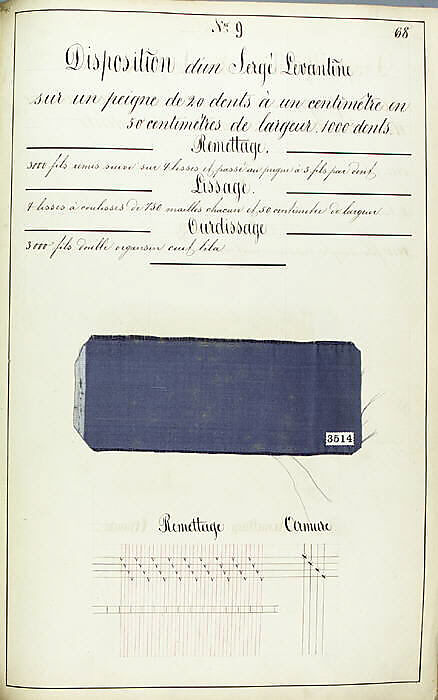 N° 9
68
Disposition d'un Sergé Levantine
sur un peigne de 20 dents à un centimètre en
50 centimètres de largeur, 1000 dents
Remettage.
3000 fils remis suivi sur 4 lisses et passé au peigne à 3 fils par dent
Lissage.
4 lisses à coulisses de 750 mailles chacun et 50 centimètre de largeur
Ourdissage
3000 fils double organsin cuit lila
3514
Remettage Armure